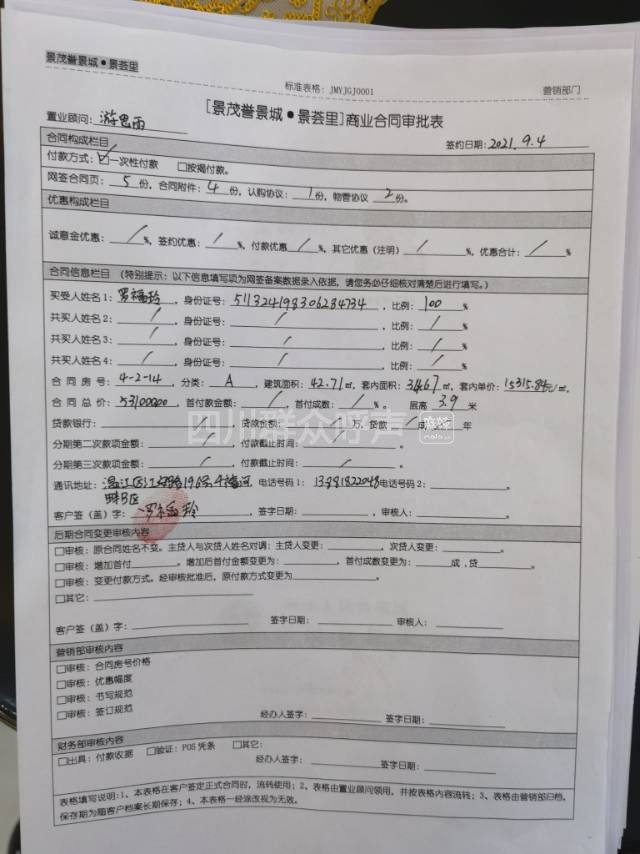 景茂誉景城•景荟里
标准表格：JMYJGJ0001 营销部门
[景茂誉景城•景荟里]商业合同审批表
置业顾问：游思雨 签约日期：2021.9.4
合同构成栏目
付款方式：☑一次性付款 □按揭付款。
网签合同页：5份，合同附件：4份，认购协议：1份，物管协议2份。
优惠构成栏目
诚意金优惠：/%，签约优惠：/%，付款优惠/%，其它优惠（注明）/%，优惠合计：/%
合同信息栏目（特别提示：以下信息填写项为网签备案数据录入依据，请您务必仔细核对清楚后进行填写。）
买受人姓名1：罗福玲，身份证号：511324198306284734，比例：100%
共买人姓名2：/，身份证号：/，比例：/%
共买人姓名3：/，身份证号：/，比例：/%
共买人姓名4：/，身份证号：/，比例：/%
合同房号：4-2-14，分类：A，建筑面积：42.71㎡，套内面积：34.67㎡，套内单价：15315.84元/㎡
合同总价：531000.00 首付款金额：/，首付成数：/%。 层高：3.9米
贷款银行：/，贷款金额：/万，贷款/成 年
分期第二次款项金额：/ 付款截止时间：/。
分期第三次款项金额：/，付款截止时间：/。
通讯地址：温江区 196号 电话号码1：13881822048 电话号码2：
畔B区
客户签（盖）字：罗福玲 签字日期： ，审核人：
后期合同变更审核内容
□审核：原合同姓名不变。主贷人与次贷人姓名对调：主贷人变更： ，次贷人变更： 。
□审核：增加首付 。增加后首付金额变更为： ，首付成数变更为： 成，贷 。
□审核：变更付款方式。经审核批准后，原付款方式变更为 。
□其它：
客户签（盖）字： 签字日期： 审核人：
营销部审核内容
□审核：合同房号价格
□审核：优惠幅度
□审核：书写规范
□审核：签订规范
经办人签字： 签字日期：
财务部审核内容
□出具：付款收据 □验证：POS 凭条 □其它：
经办人签字： 签字日期：
表格填写说明：1、本表格在客户签定正式合同时，流转使用；2、表格由置业顾问领用，并按表格内容流转；3、表格由营销部归档，
保存期为随客户档案长期保存；4、本表格一经涂改视为无效。
四川群众呼声
麻辣
mala.cn